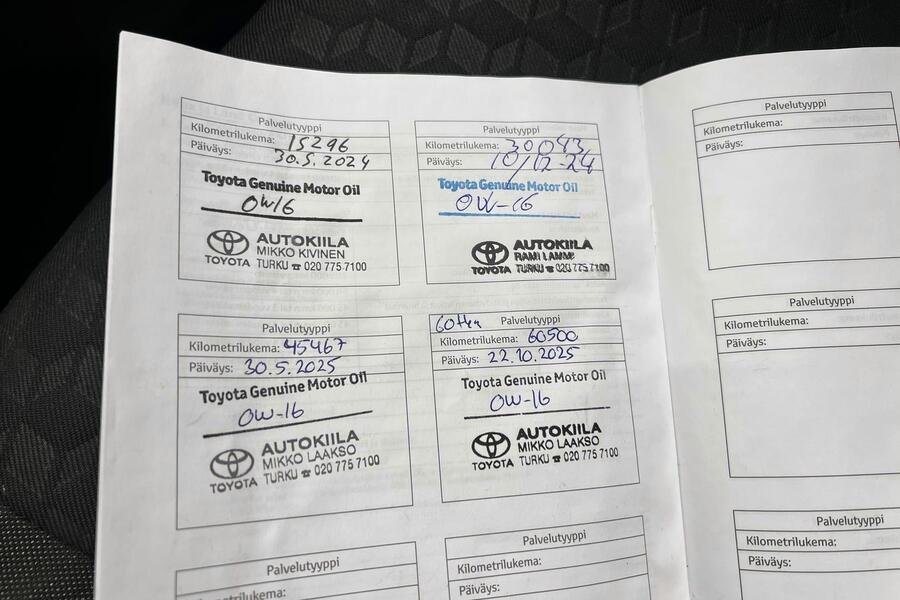 Palvelutyyppi
Kilometrilukema: 15296
Päiväys: 30.5.2024
Toyota Genuine Motor Oil
0W16
AUTOKIILA
MIKKO KIVINEN
TOYOTA TURKU ☎ 020 775 7100
Palvelutyyppi
Kilometrilukema: 30043
Päiväys: 10/12-24
Toyota Genuine Motor Oil
0W-16
AUTOKIILA
RAMI LAMMI
TOYOTA TURKU ☎ 020 775 7100
Palvelutyyppi
Kilometrilukema: 45467
Päiväys: 30.5.2025
Toyota Genuine Motor Oil
0W-16
AUTOKIILA
MIKKO LAAKSO
TOYOTA TURKU ☎ 020 775 7100
Palvelutyyppi
Kilometrilukema: 60500
Päiväys: 22.10.2025
Toyota Genuine Motor Oil
0W-16
AUTOKIILA
MIKKO LAAKSO
TOYOTA TURKU ☎ 020 775 7100
Palvelutyyppi
Kilometrilukema:
Palvelutyyppi
Kilometrilukema:
Päiväys:
Palvelutyyppi
Kilometrilukema:
Päiväys:
Palvelutyyppi
Kilometrilukema:
Päiväys:
Palvelutyyppi
Kilometrilukema:
Päiväys: